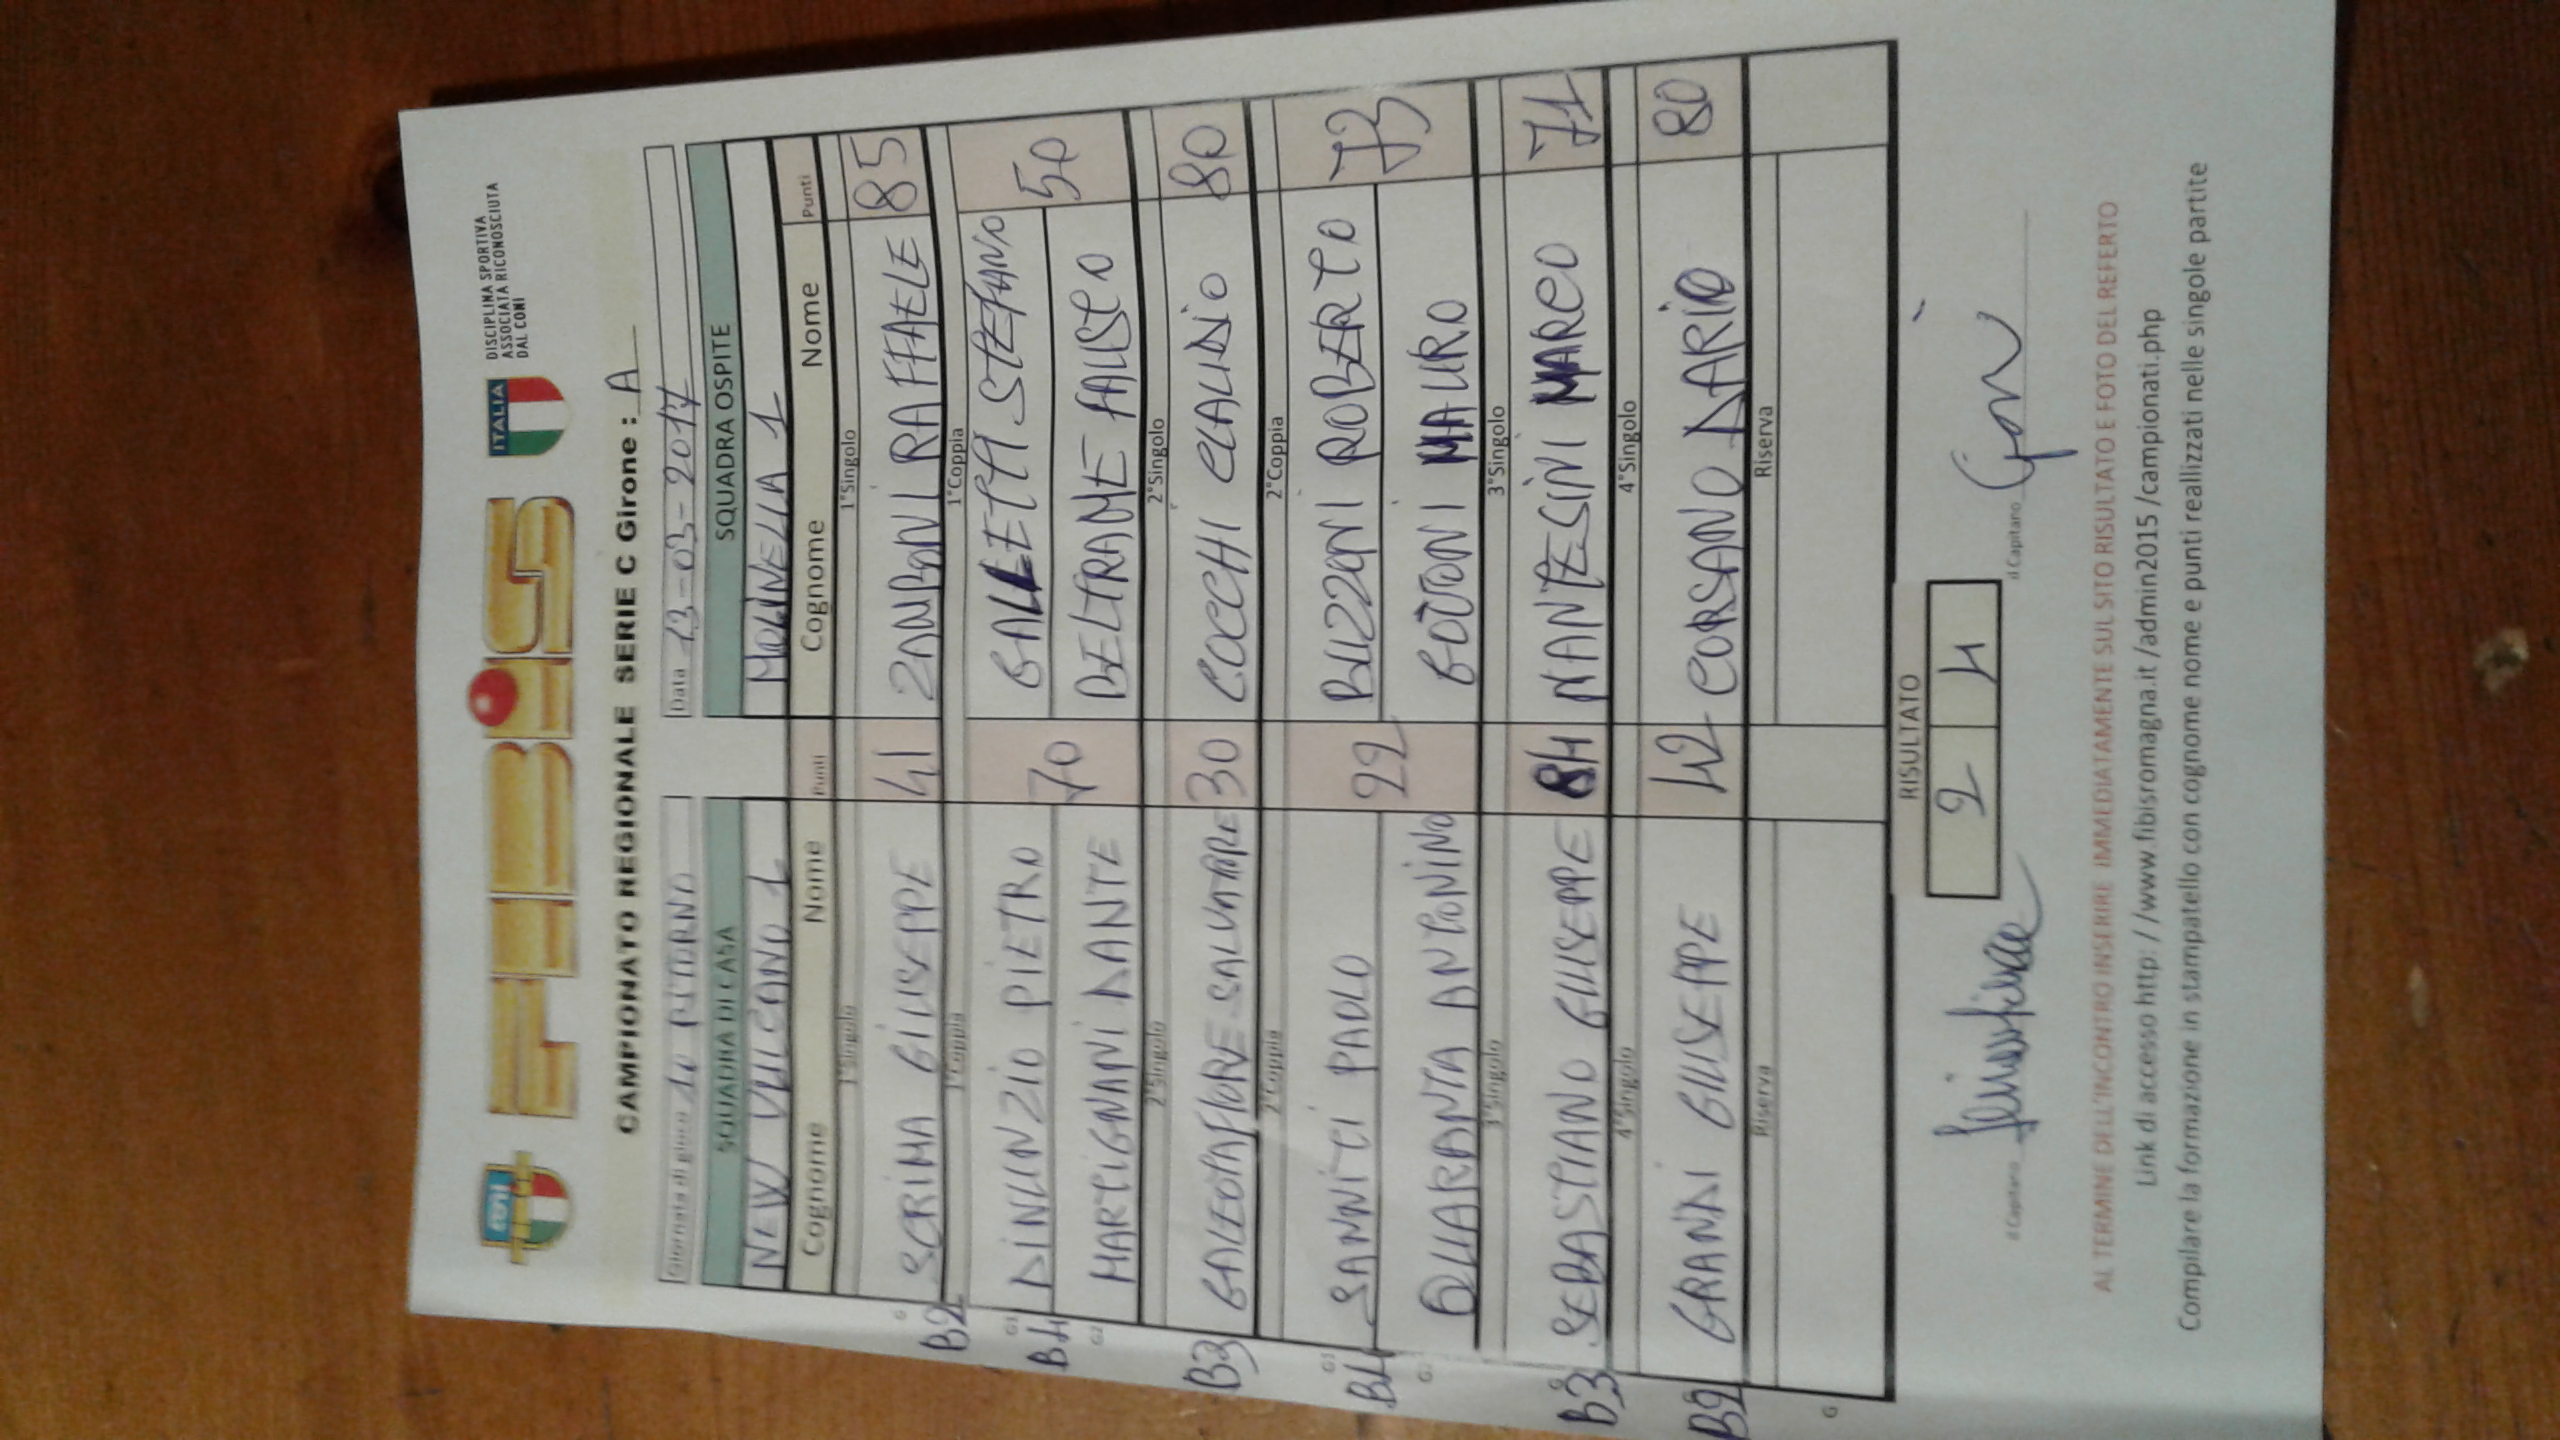 CONI
FIBiS
ITALIA
DISCIPLINA SPORTIVA
ASSOCIATA RICONOSCIUTA
DAL CONI
CAMPIONATO REGIONALE SERIE C Girone : A
Giornata di gioco 10 RITORNO Data 13-03-2017
SQUADRA DI CASA SQUADRA OSPITE
NEW VULCANO 1 MOLINELLA 1
Cognome Nome Punti Cognome Nome Punti
1°Singolo 1°Singolo
B2 G SCRIMA GIUSEPPE 41 ZANBONI RAFFAELE 85
1°Coppia 1°Coppia
B4 G1 DINUNZIO PIETRO 70 GALLETTI STEFANO 50
G2 MARTIGNANI DANTE BELTRAME FAUSTO
2°Singolo 2°Singolo
B3 GALEOTAFIORE SALVATORE 30 COCCHI CLAUDIO 80
2°Coppia 2°Coppia
B4 G1 SANNITI PAOLO 22 BUZZONI ROBERTO 73
G2 QUARANTA ANTONINO GOTTONI MAURO
3°Singolo 3°Singolo
B3 G SEBASTIANO GIUSEPPE 84 MANTESINI MARCO 71
4°Singolo 4°Singolo
B2 G GRANDI GIUSEPPE 42 CORSANO DARIO 80
Riserva Riserva
G
RISULTATO
2 4
il Capitano il Capitano
AL TERMINE DELL'INCONTRO INSERIRE IMMEDIATAMENTE SUL SITO RISULTATO E FOTO DEL REFERTO
Link di accesso http: //www.fibisromagna.it /admin2015 /campionati.php
Compilare la formazione in stampatello con cognome nome e punti reallizzati nelle singole partite